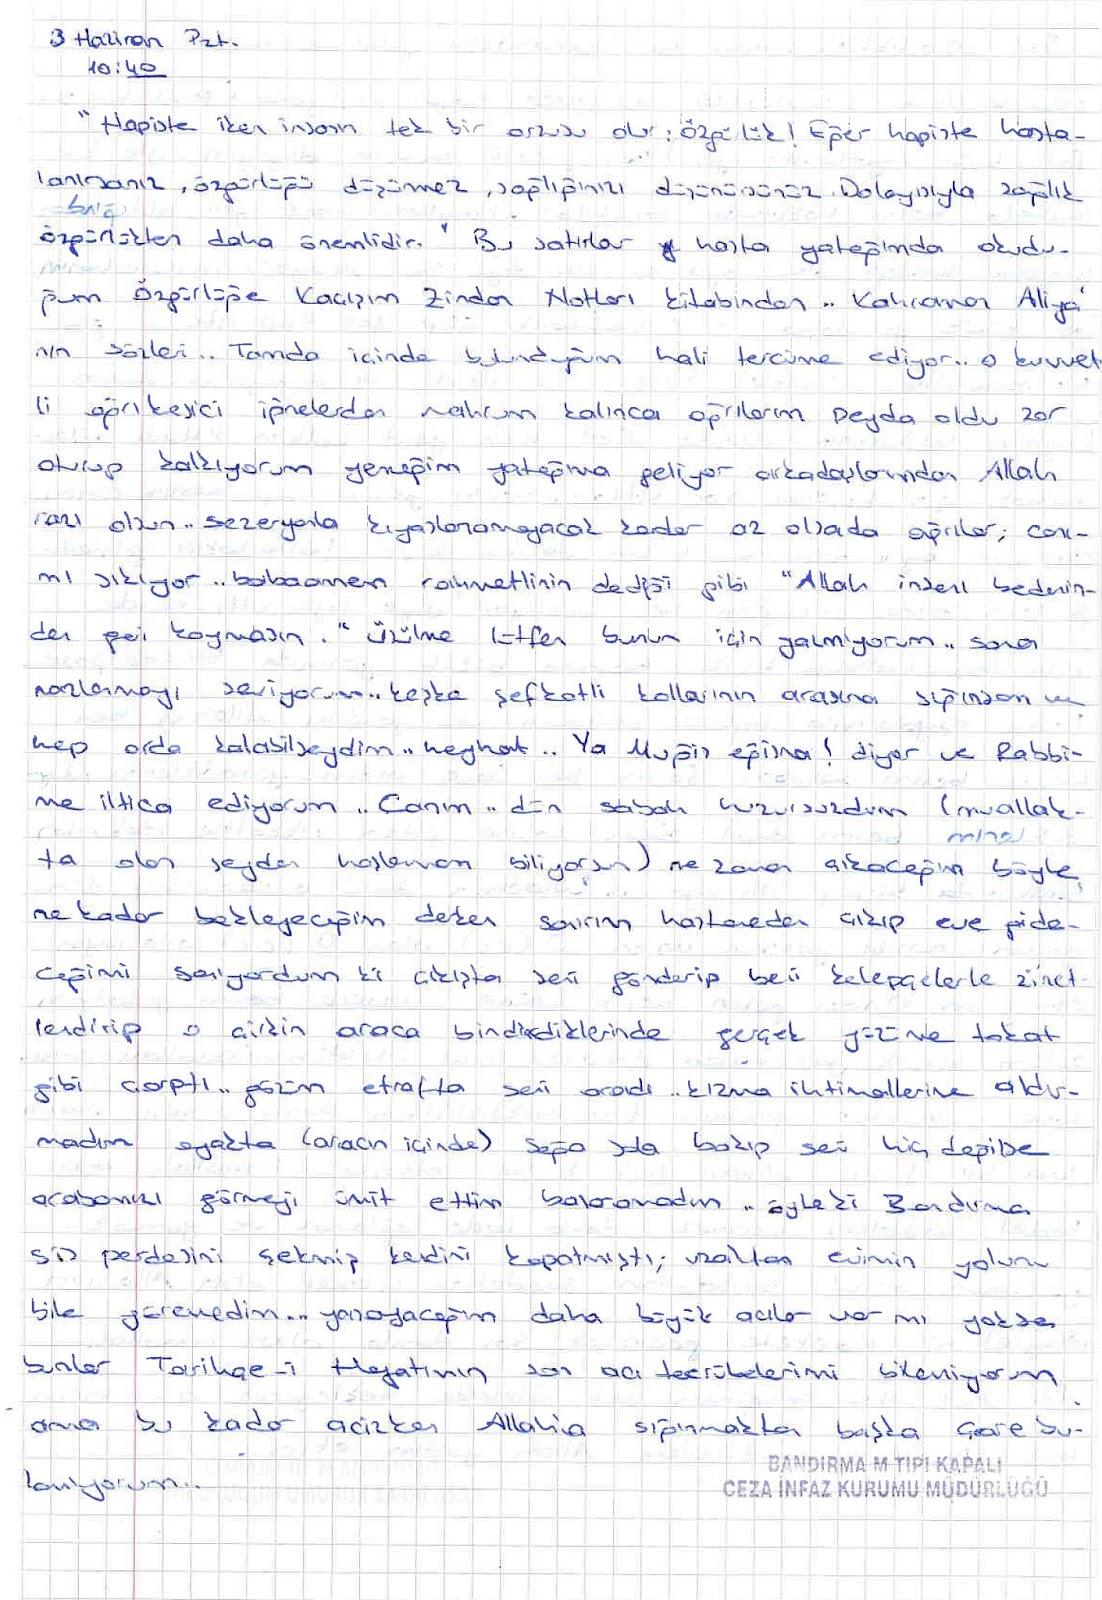 3 Haziran Pzt.
10:40
"Hapiste iken insanın tek bir arzusu olur: özgürlük! Eğer hapiste hasta-
lanırsanız, özgürlüğü düşünmez, sağlığınızı düşünürsünüz. Dolayısıyla sağlık
özgürlükten daha önemlidir." Bu satırlar hasta yatağımda okudu-
ğum Özgürlüğe Kaçışım Zindan Notları kitabından.. Kahraman Aliya'
nın sözleri.. Tamda içinde bulunduğum hali tercüme ediyor.. o kuvvet-
li ağrıkesici iğnelerden mahrum kalınca ağrılarım peyda oldu zor
oturup kalkıyorum yemeğim yatağıma geliyor arkadaşlarımdan Allah
razı olsun.. sezeryanla kıyaslanamayacak kadar az olsada ağrılar; canı-
mı sıkıyor.. babaannem rahmetlinin dediği gibi "Allah insanı bedenin-
den geri koymasın." üzülme lütfen bunun için yazmıyorum.. sana
nazlanmayı seviyorum.. keşke şefkatli kollarının arasına sığınsam ve
hep orda kalabilseydim.. heyhat.. Ya Muğis eğisna! diyor ve Rabbi-
me iltica ediyorum.. Canım.. dün sabah huzursuzdum (muallak-
ta olan şeyden hoşlanmam biliyorsun) ne zaman çıkacağım böyle
ne kadar bekleyeceğim derken sanırım hastaneden çıkıp eve gide-
ceğimi sanıyordum ki çıkışta seni gönderip beni kelepçelerle zinet-
lendirip o çirkin araca bindirdiklerinde gerçek yüzüme tokat
gibi çarptı.. gözüm etrafta seni aradı.. kızma ihtimallerine aldır-
madım ayakta (aracın içinde) sağa sola bakıp seni hiç değilse
arabamızı görmeyi ümit ettim bakaramadım.. öyleki Bandırma
sis perdesini çekmiş kendini kapatmıştı; uzaktan evimin yolunu
bile göremedim... yaşayacağım daha büyük acılar var mı yoksa
bunlar Tarihçe-i Hayatımın son acı tecrübelerimi bilemiyorum
ama bu kadar acizken Allah'a sığınmaktan başka çare bu-
lamıyorum...
BANDIRMA M TİPİ KAPALI
CEZA İNFAZ KURUMU MÜDÜRLÜĞÜ